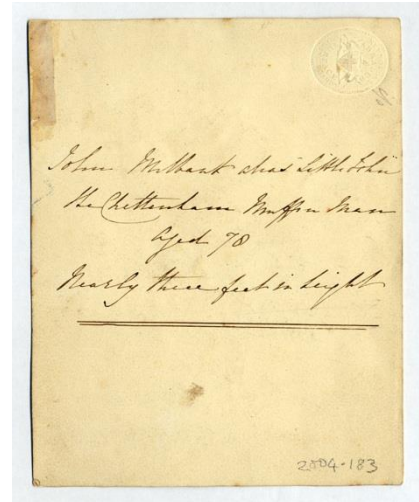 John Millbank alias "Little John"
the Cheltenham Muffin Man
Aged 78
Nearly three feet in height
2004-183